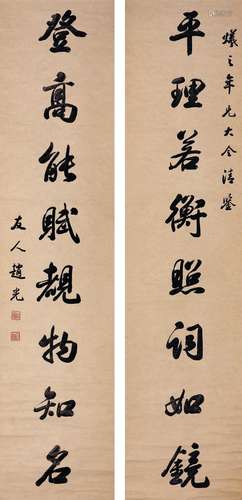 之年兄大令清鑒
平理若衡照詞如鏡
登高能賦覩物知名
友人趙光